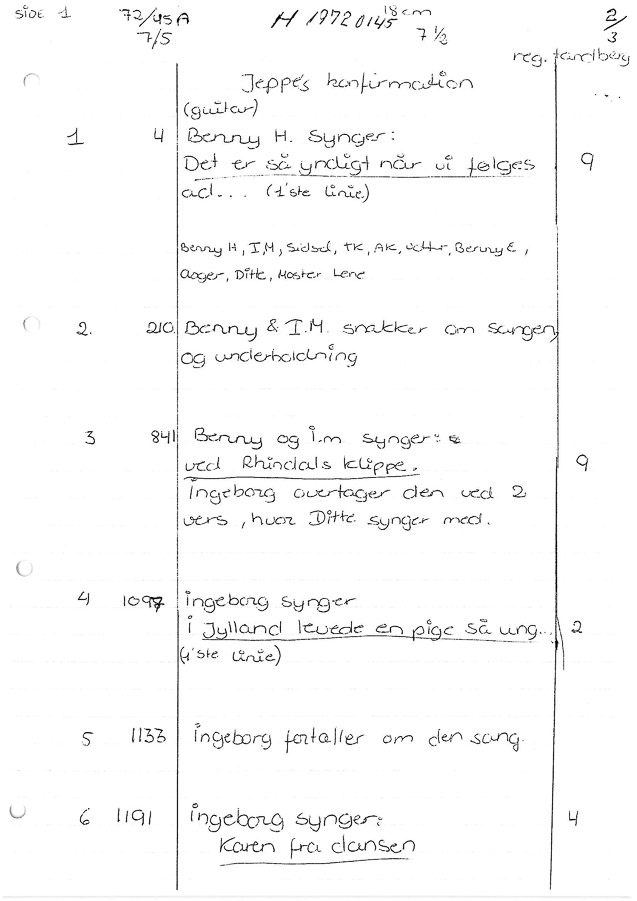 SIDE 1 72/45A H 1972 0145 18 cm 2/3
7/5 7 1/2
reg. tandberg
Jeppe's konfirmation ...
(guitar)
1 4 Benny H. synger:
Det er så yndigt når vi følges 9
ad... (1'ste linie)
Benny H, I.M, Sidsel, TK, AK, Benny E,
Aager, Ditte, Moster Lene
2. 210 Benny & I.M. snakker om sangen,
og underholdning
3 841 Benny og i.m synger:
ved Rhindals klippe. 9
Ingeborg overtager den ved 2
vers, hvor Ditte synger med.
4 1097 ingeborg synger
i Jylland levede en pige så ung... 2
(1'ste linie)
5 1133 ingeborg fortæller om den sang.
6 1191 ingeborg synger: 4
Karen fra dansen